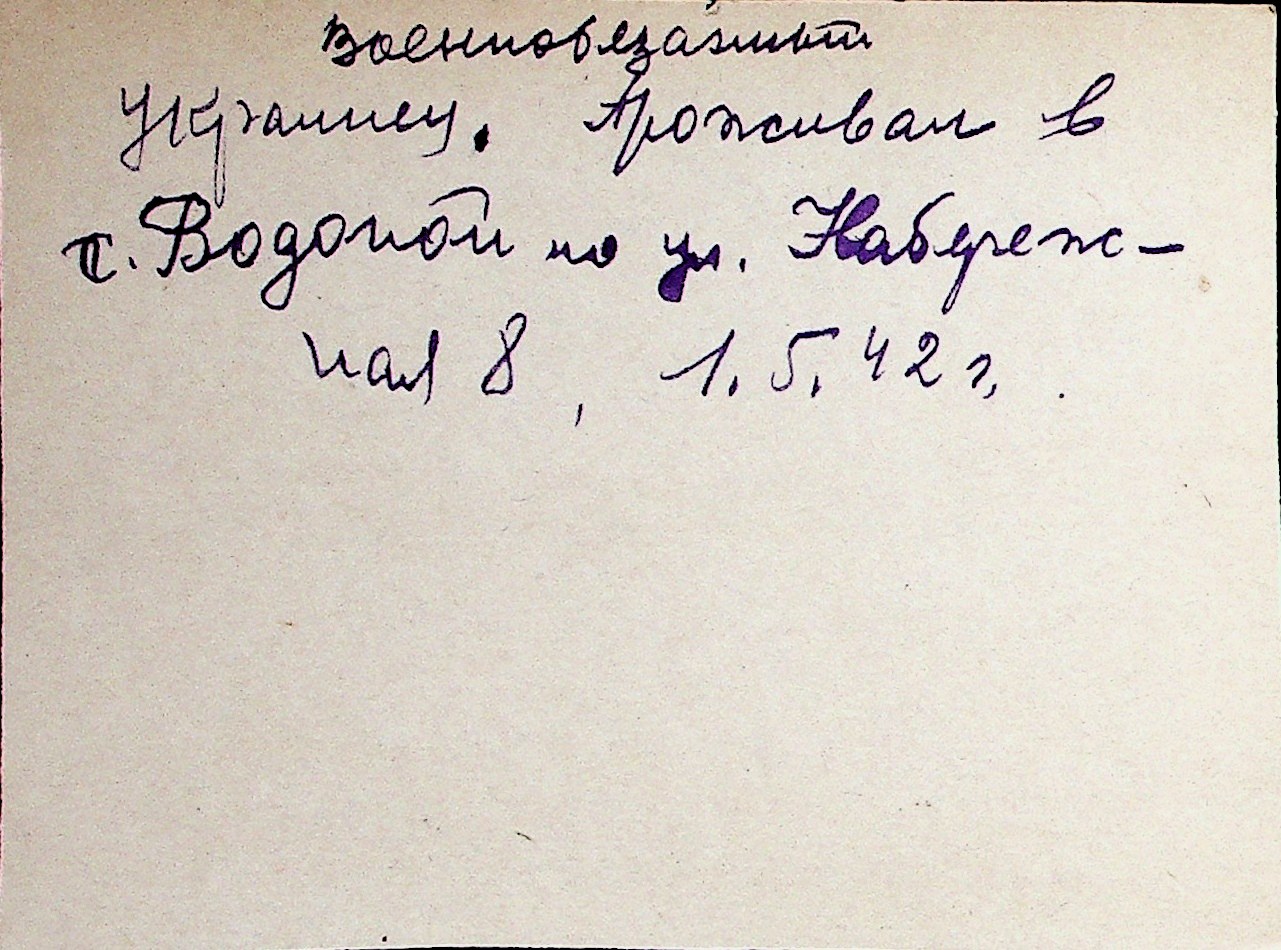 Военнообязаный
Украинец. Проживал в
п. Водопой по ул. Набереж-
ная 8, 1.5.42 г.